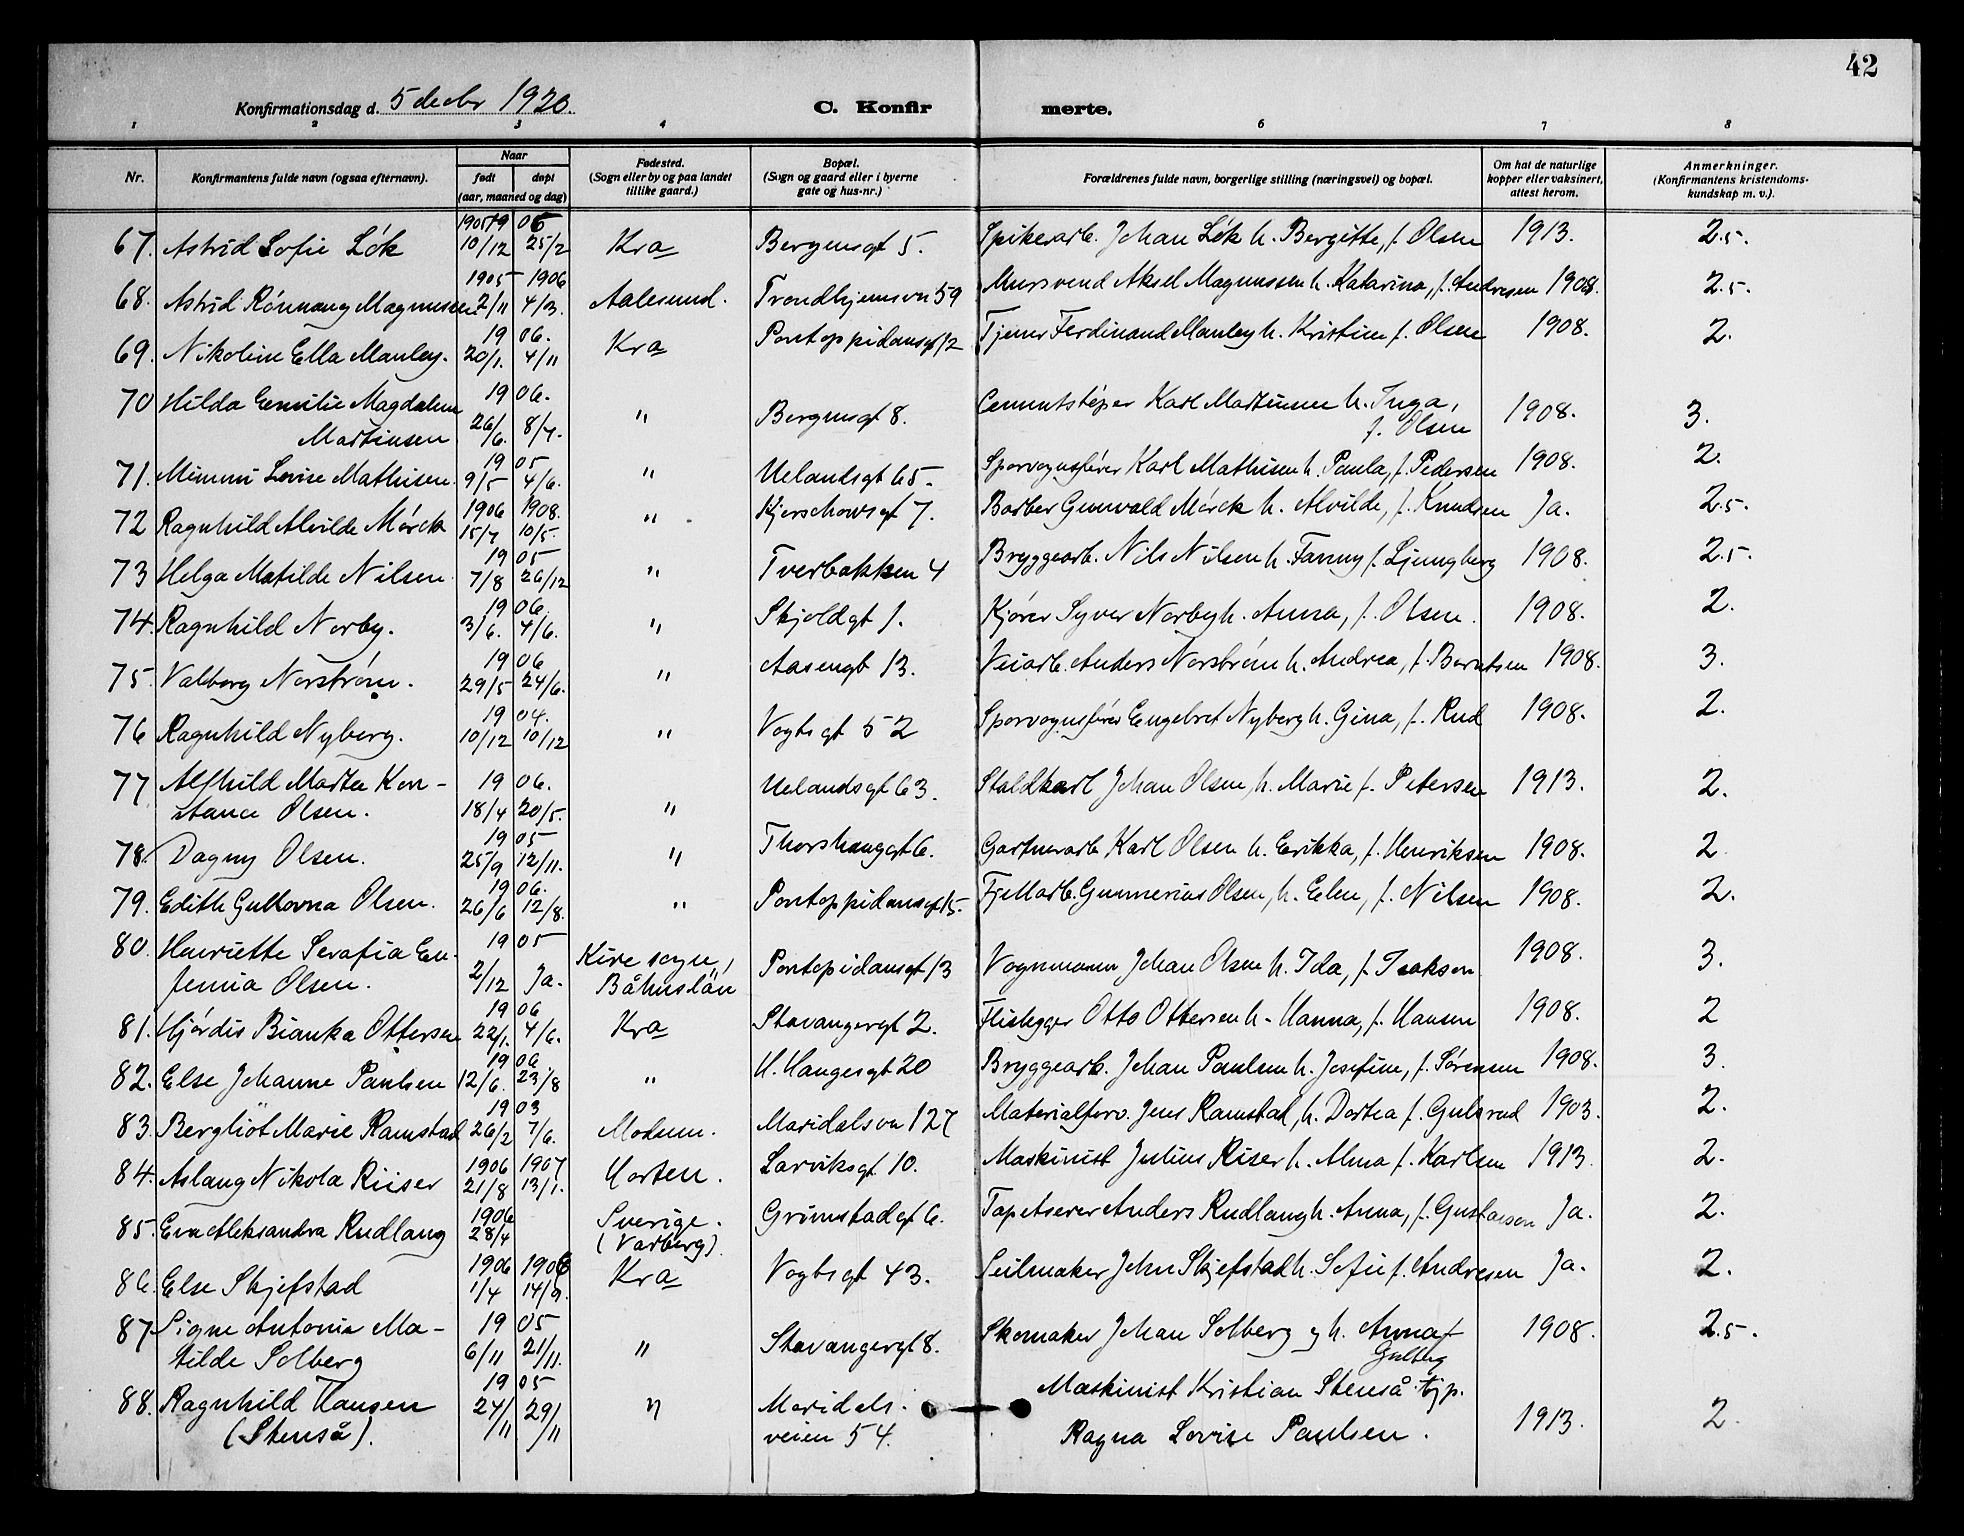 42
Konfirmationsdag d. 5 decbr 1920.
C. Konfir merte.
1 2 3 4 6 7 8
Nr. Konfirmantens fulde navn (ogsaa efternavn). Naar født døpt (aar, maaned og dag) Fødested. (Sogn eller by og paa landet tillike gaard.) Bopæl. (Sogn og gaard eller i byerne gate og hus-nr.) Forældrenes fulde navn, borgerlige stilling (næringsvei) og bopæl. Om hat de naturlige kopper eller vaksinert, attest herom. Anmerkninger. (Konfirmantens kristendoms-kundskap m. v.).
67. Astrid Sofie Løk 1905 10/12 1906 25/2 Kra Bergensgt 5. Spikerarb. Johan Løk h. Bergitte, f. Olsen 1913. 2.5.
68. Astrid Rønnaug Magnussen 1905 2/11 1906 4/3. Aalesund. Trondhjemsvn 59 Mursvend Aksel Magnussen h. Katarina, f. Andresen 1908. 2.5.
69. Nikoline Ella Manley. 1906. 20/1. 4/11 Kra Pontoppidansgt 12 Tjener Ferdinand Manley h. Kristine f. Olsen 1908. 2.
70 Hilda Emilie Magdalena 1906.
Martinsen 26/6. 8/7. " Bergensgt 8. Cementstøper Karl Martinsen h. Inga, f. Olsen 1908. 3.
71. Mimmi Lovise Mathisen. 1905 9/5 4/6. " Uelandsgt 65. Sporvognsfører Karl Mathisen h. Paula, f. Pedersen 1908. 2.
72 Ragnhild Alvilde Mørck 1906 15/7 1908. 10/5. " Kjerschowsgt 7. Barber Gunvald Mørck h. Alvilde, f. Knudsen Ja. 2.5.
73 Helga Matilde Nilsen. 1905 7/8 26/12 " Tverbakken 4 Bryggearb. Nils Nilsen h. Fanny f. Ljungberg 1908. 2.5.
74. Ragnhild Norby. 1906. 3/6. 4/6. " Skjoldgt 1. Kjører Syver Norby h. Anna, f. Olsen. 1908. 2.
75. Valborg Norstrøm. 1906 29/5 24/6. " Aasengt 13. Veiarb. Anders Norstrøm h. Andrea, f. Berntsen 1908. 3.
76 Ragnhild Nyberg. 1904. 10/12 10/12 " Vogtsgt 52 Sporvognsfører Engebret Nyberg h. Gina, f. Rud 1908. 2.
77 Alfhild Marta Kon-
stance Olsen. 1906. 18/4 20/5. " Uelandsgt 63. Staldkarl Johan Olsen, h. Marie f. Petersen 1913. 2.
78. Dagny Olsen. 1905 25/9 12/11. " Thorshauggt 6. Gartnerarb Karl Olsen h. Erikka, f. Henriksen 1908. 2
79. Edith Gullovna Olsen. 1906. 26/6 12/8. " Pontoppidansgt 15. Fjellarb. Gunnerius Olsen, h. Elen, f. Nilsen 1908. 2.
80. Henriette Serafia Eu-
fenia Olsen. 1905 2/12 Ja. Kire sogn, Båhuslän Pontopidansgt 13 Vognmann Johan Olsen h. Ida, f. Isaksen 1908. 3.
81. Hjørdis Bianka Ottersen 1906 22/1. 4/6. Kra Stavangergt 2. Flislegger Otto Ottersen h. Hanna, f. Hansen 1908. 2
82. Else Johanne Paulsen 1906. 12/6. 23/8 " H. Haugesgt 20 Bryggearb. Johan Paulsen h. Josefine, f. Sørensen 1908. 3.
83. Bergliot Marie Ramstad 1903 26/2 7/6. Modum. Maridalsvn 127 Materialforv. Jens Ramstad, h. Dortea f. Gulsrud 1903. 2.
84. Aslaug Nikola Riiser 1906 21/8 1907 13/1. Horten. Larviksgt 10. Maskinist Julius Riser h. Alma f. Karlsen 1913. 2.
85. Eva Aleksandra Rudlang 1906 28/4 Sverige. (Varberg). Grimstadgt 6. Tapetserer Anders Rudlang h. Anna, f. Gustavson Ja. 2.
86. Else Skjefstad 1906 1/4 1906 14/9. Kra Vogtsgt 43. Seilmaker John Skjefstad h. Sofie f. Andresen Ja. 2.
87. Signe Antonie Ma-
tilde Solberg 1905 6/11 21/11. " Stavangergt 8. Skomaker Johan Solberg og h. Anna f. Gulbrg 1908. 2.5.
88. Ragnhild Hansen
(Stenså). 1905 24/11 29/11 " Maridals-
veien 54. Maskinist Kristian Stenså typ.
Ragna Lovise Paulsen. 1913. 2.